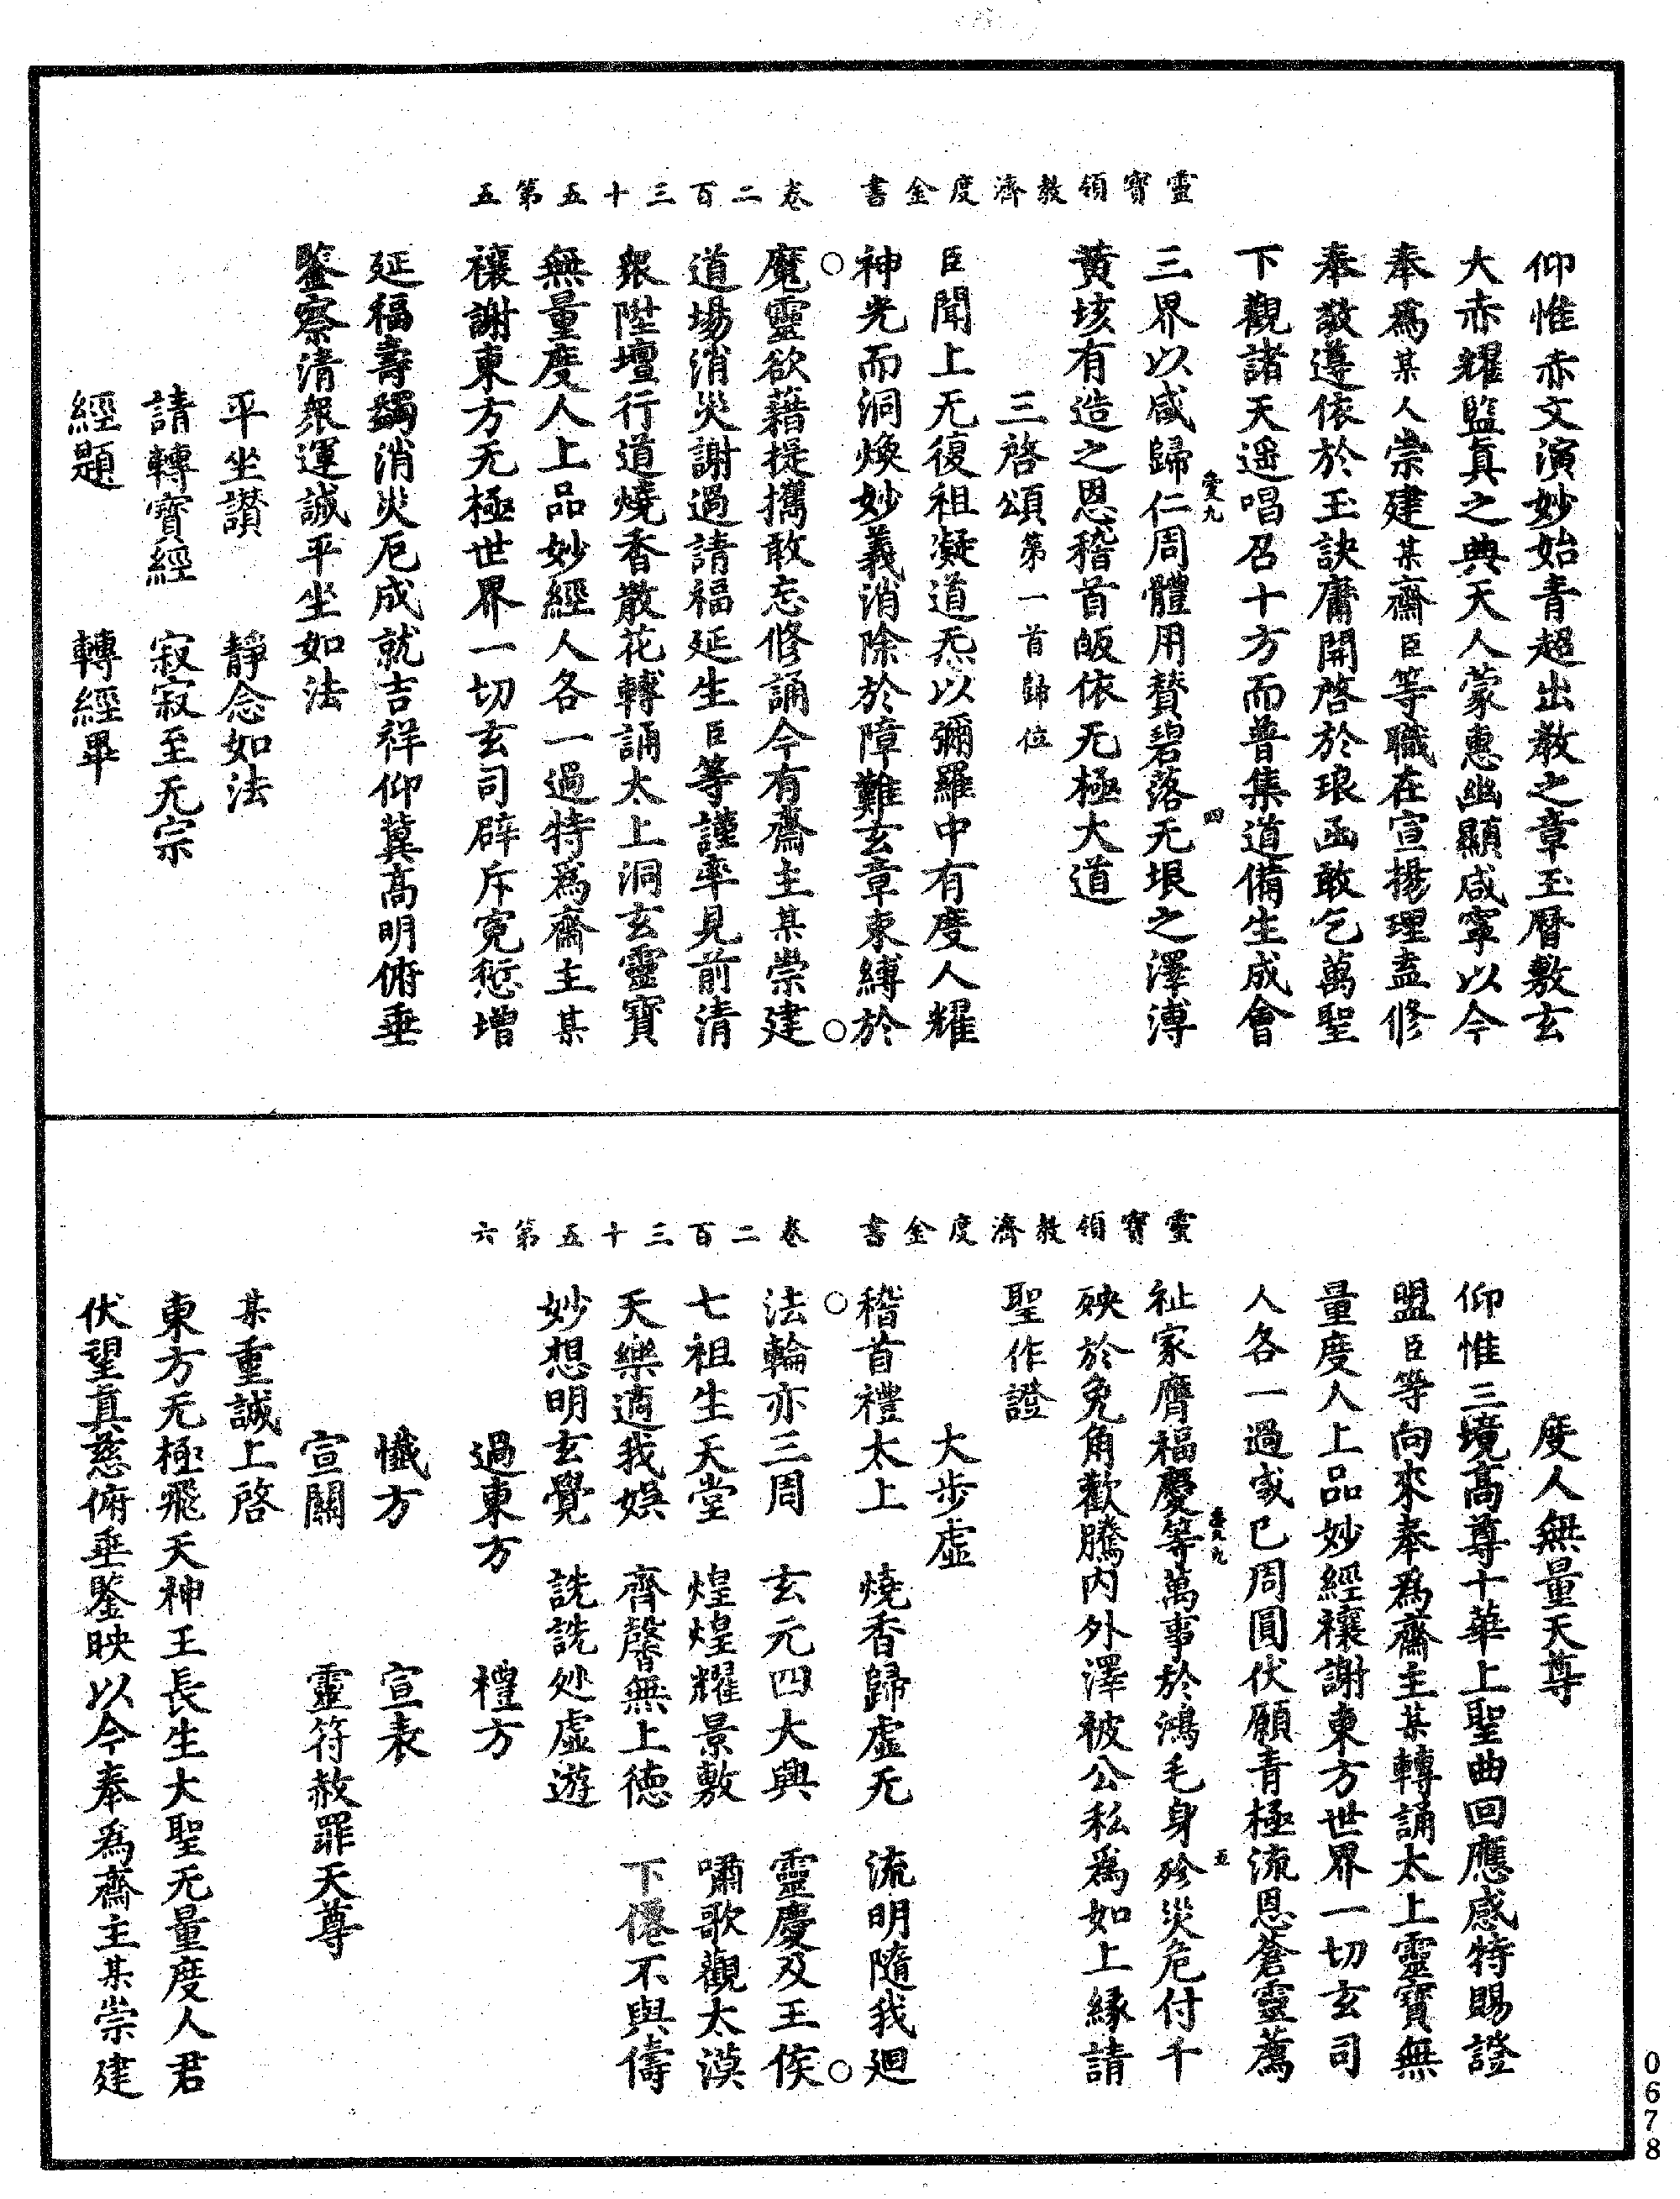 靈寶領教濟度金書　卷二百三十五第五
仰惟赤文演妙始青超出教之章玉曆敷玄
大赤耀監真之典天人蒙惠幽顯咸寧以今
奉為某人崇建某齋臣等職在宣揚理盍修
奉敬遵依於玉訣庸開啓於琅函敢乞萬聖
下觀諸天遥唱召十方而普集道備生成會
三界以咸歸仁周體用贊碧落无垠之澤溥
愛九　四
黃垓有造之恩稽首皈依无極大道
三啓頌第一首歸位
臣聞上无復祖凝道炁以彌羅中有度人耀
神光而洞煥妙義消除於障難玄章束縛於
魔靈欲藉提攜敢忘修誦今有齋主某崇建
道場消災謝過請福延生臣等謹率見前清
衆陞壇行道燒香散花轉誦太上洞玄靈寶
無量度人上品妙經人各一過特為齋主某
禳謝東方无極世界一切玄司辟斥寃愆增
延福壽蠲消災厄成就吉祥仰冀高明俯垂
鑒察清衆運誠平坐如法
平坐讃　靜念如法
請轉寶經　寂寂至无宗
經題　轉經畢
靈寶領教濟度金書　卷二百三十五第六
度人無量天尊
仰惟三境高尊十華上聖曲回應感特賜證
盟臣等向來奉為齋主某轉誦太上靈寶無
量度人上品妙經禳謝東方世界一切玄司
人各一過或已周圓伏願青極流恩蒼靈薦
祉家膺福慶等萬事於鴻毛身殄災危付千
五
殃於免角歡騰内外澤被公私為如上緣請
聖作證
大步虛
稽首禮太上　燒香歸虛无　流明隨我廻
法輪亦三周　玄元四大興　靈慶及王侯
七祖生天堂　煌煌耀景敷　嘯歌觀太漠
天樂適我娛　齊馨無上徳　下僊不與儔
妙想明玄覺　詵詵処虛遊
過東方　禮方
懺方　宣表
宣關　靈符赦罪天尊
某重誠上啓
東方无極飛天神王長生大聖无量度人君
伏望真慈俯垂鑒映以今奉為齋主某崇建
0678